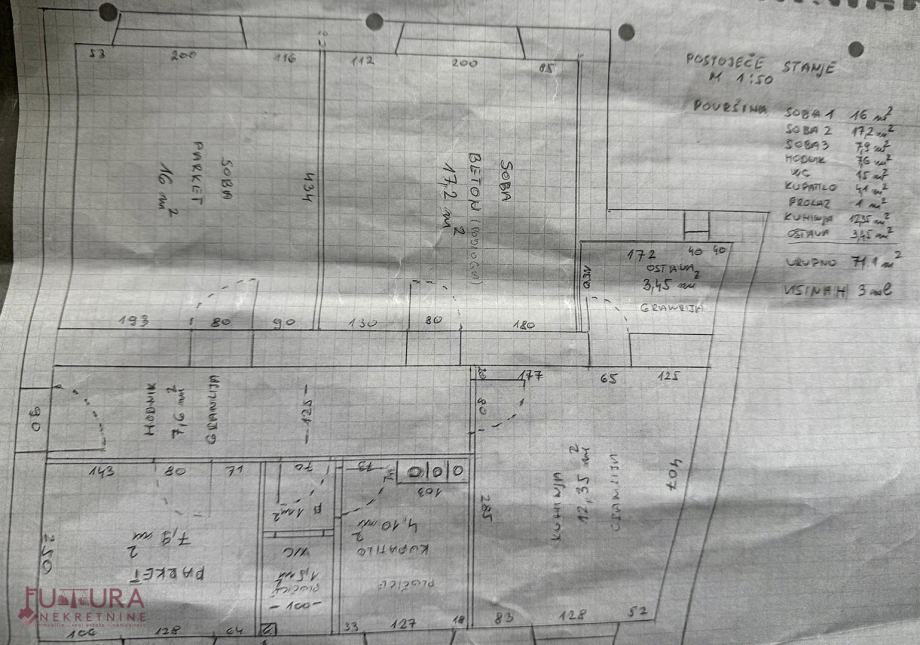 POSTOJEĆE STANJE
M 1:50
POVRŠINA
SOBA 1 16 m²
SOBA 2 17,2 m²
SOBA 3 7,9 m²
HODNIK 7,6 m²
WC 1,5 m²
KUPATILO 4,1 m²
PROLAZ 1 m²
KUHINJA 12,35 m²
OSTAVA 3,45 m²
UKUPNO 71,1 m²
VISINA H 3 m
53 200 116 112 200 85
SOBA
PARKET
16 m²
434
SOBA
BETON (PODLOGA)
17,2 m²
172 40 40
OSTAVA
3,45 m²
GRANDIJA
193 80 90 130 80 180
177 65 125
90
HODNIK
7,6 m²
-125-
80
143 80 71 70 73
103
250
7,9 m²
PARKET
P
1 m²
WC
1,5 m²
PLOČICE
-100-
4,10 m²
KUPATILO
PLOČICE
285
KUHINJA
12,35 m²
407
106 128 64 33 127 18 83 128 52
FUTURA
NEKRETNINE